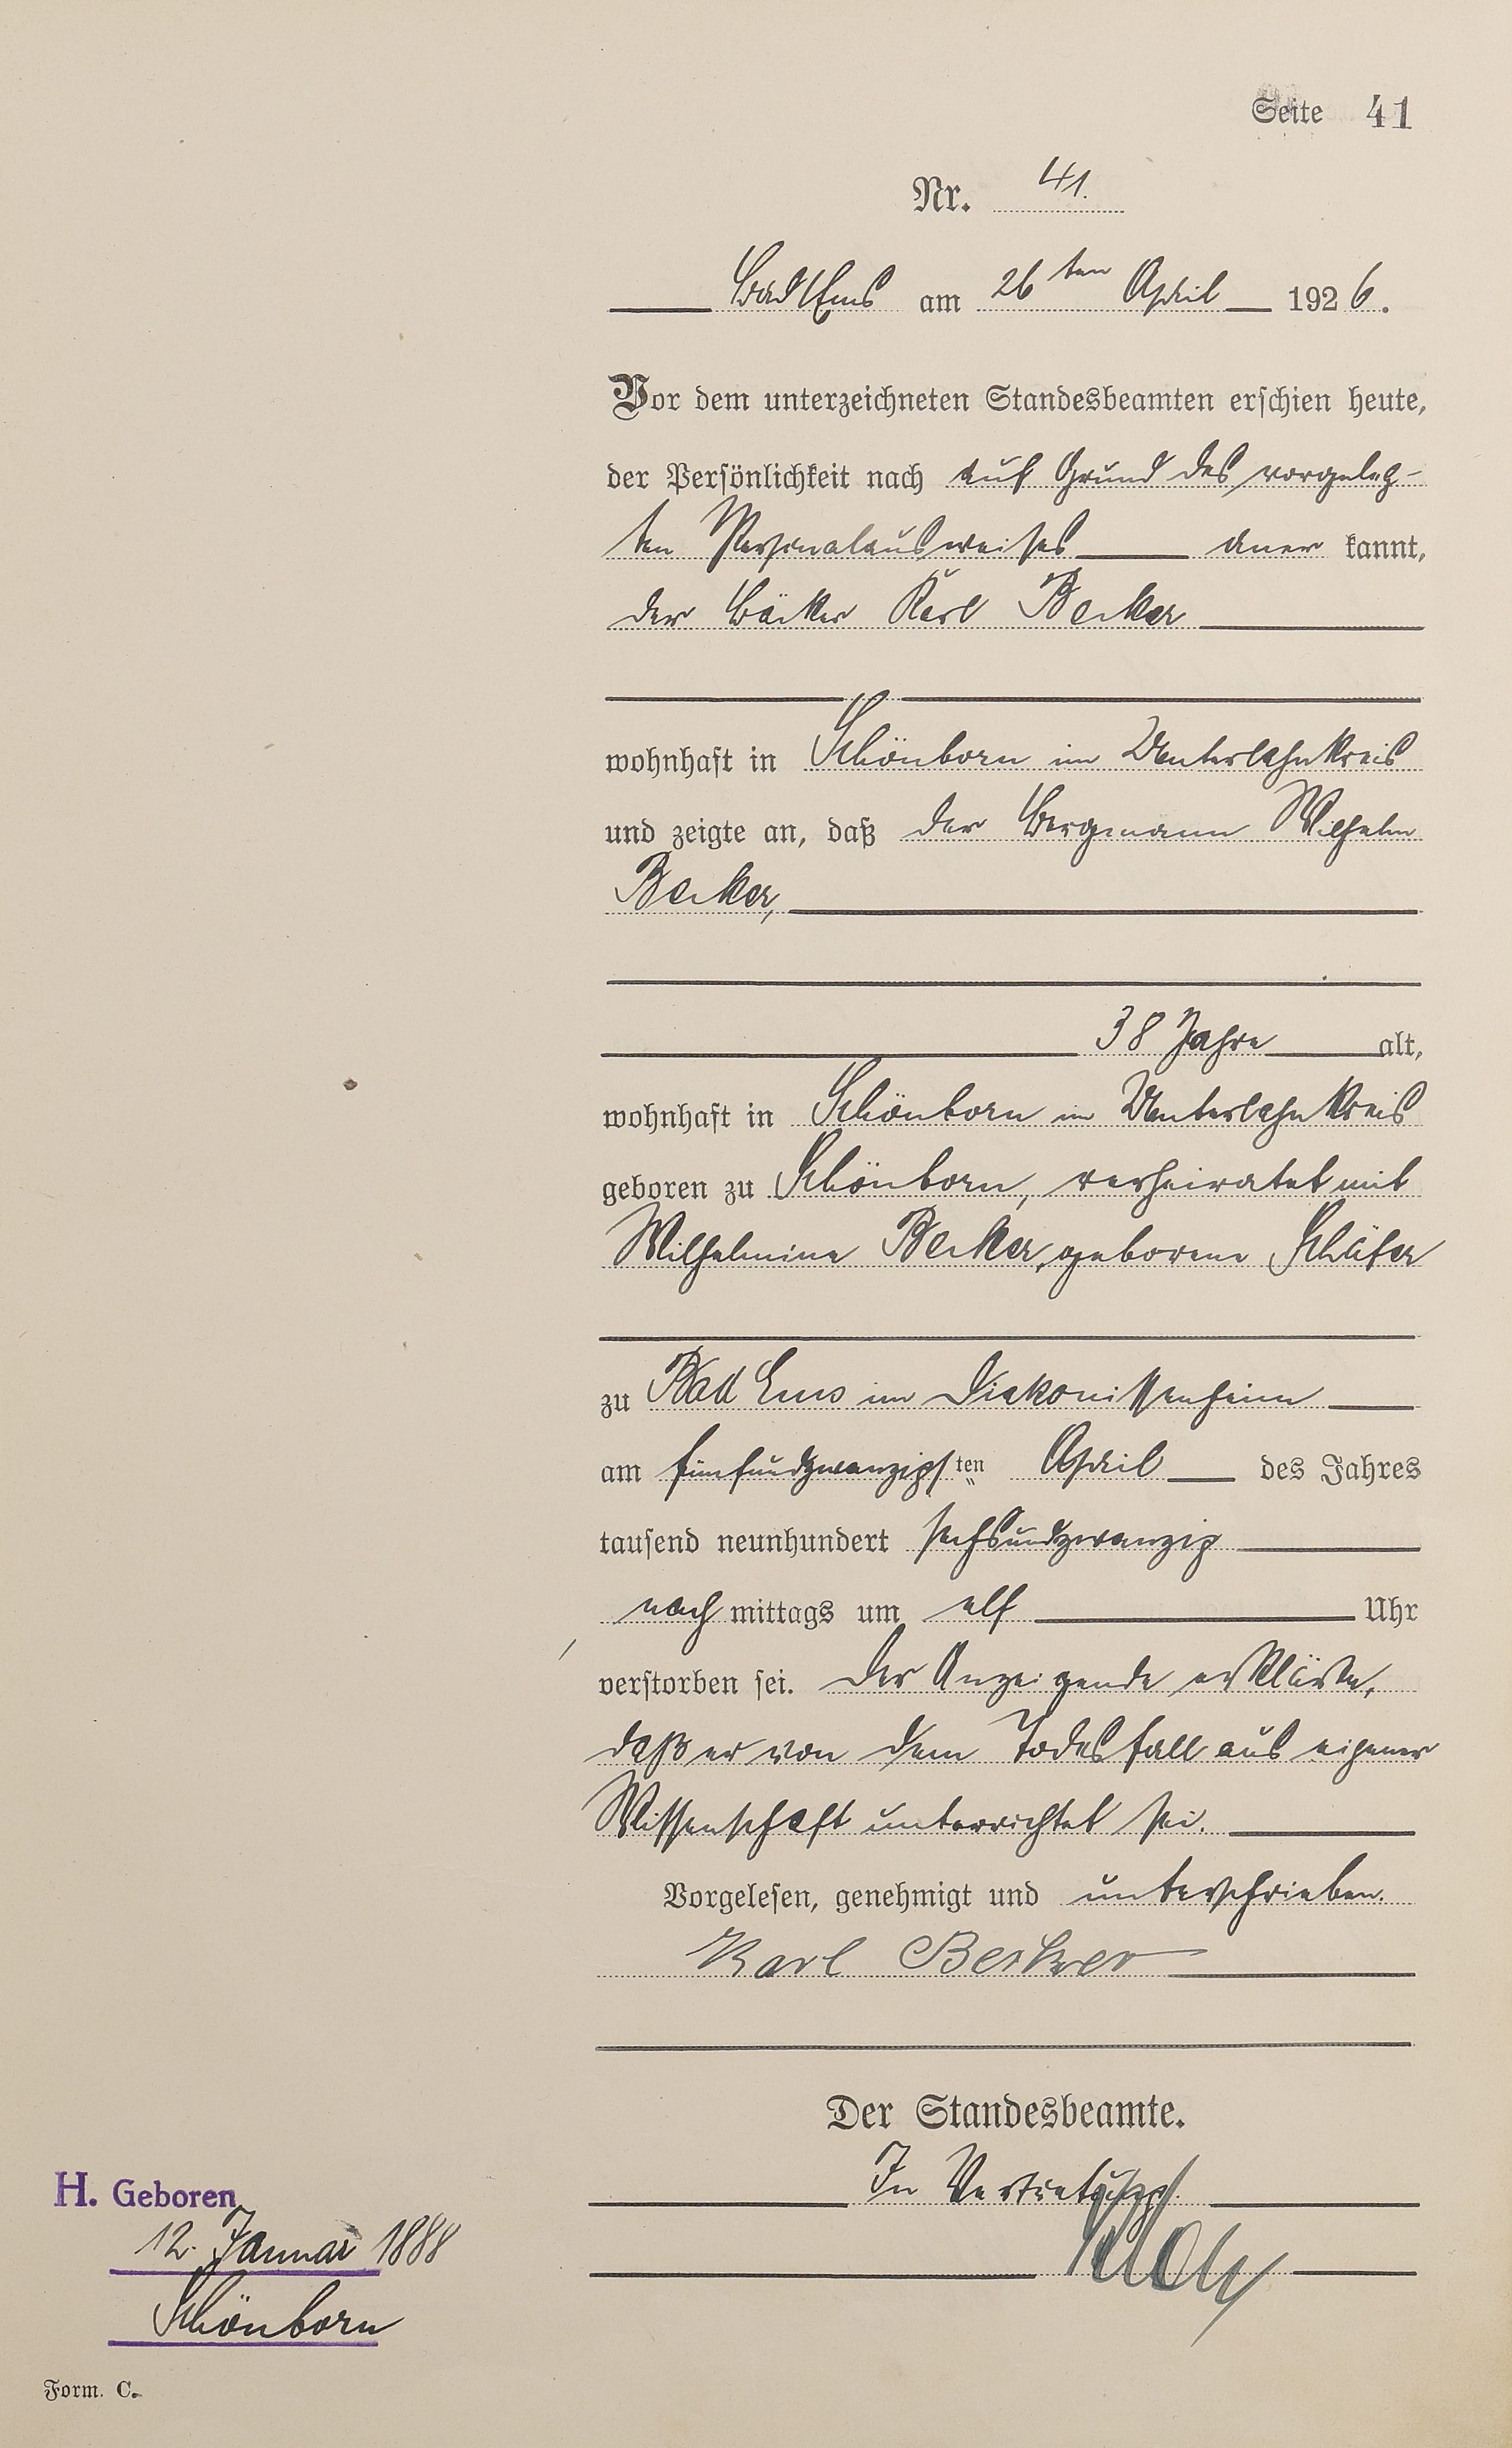 Seite 41
Nr. 41.
Bad Ems am 26ten April 1926.
Vor dem unterzeichneten Standesbeamten erschien heute,
der Persönlichkeit nach auf Grund des vorgeleg-
ten Personalausweises aner kannt,
der Bäcker Karl Becker
wohnhaft in Schönborn im Unterlahnkreis
und zeigte an, daß der Bergmann Wilhelm
Becker,
38 Jahre alt,
wohnhaft in Schönborn im Unterlahnkreis
geboren zu Schönborn, verheiratet mit
Wilhelmine Becker, geborene Schäfer
zu Bad Ems im Diakonissenheim
am fünfundzwanzigsten April des Jahres
tausend neunhundert sechsundzwanzig
nach mittags um elf Uhr
verstorben sei. Der Anzeigende erklärte,
daß er von dem Todesfall aus eigener
Wissenschaft unterrichtet sei.
Vorgelesen, genehmigt und unterschrieben.
Karl Becker
Der Standesbeamte.
In Vertretung.
H. Geboren
12. Januar 1888
Schönborn
Form. C.